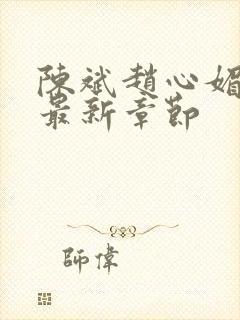 陳斌趙心媚
最新章節
師偉